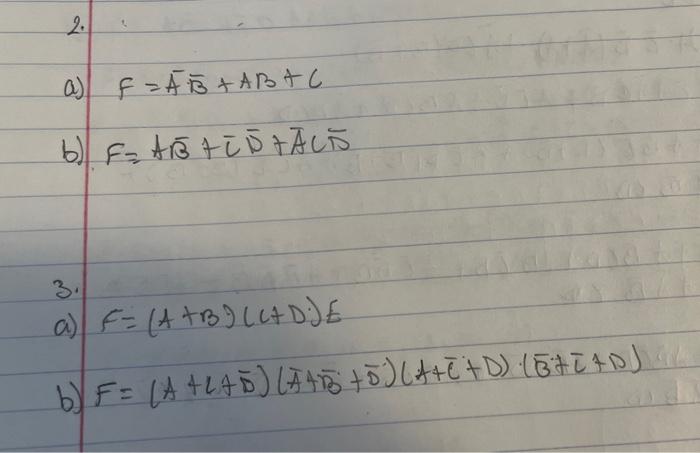 2.
a) F = A̅ B̅ + AB + C
b) F = AB̅ + C̅ D̅ + A̅ C D̅
3.
a) F = (A + B) (C + D) E
b) F = (A + C + D̅) (A̅ + B̅ + D̅) (A + C̅ + D) · (B̅ + C̅ + D)